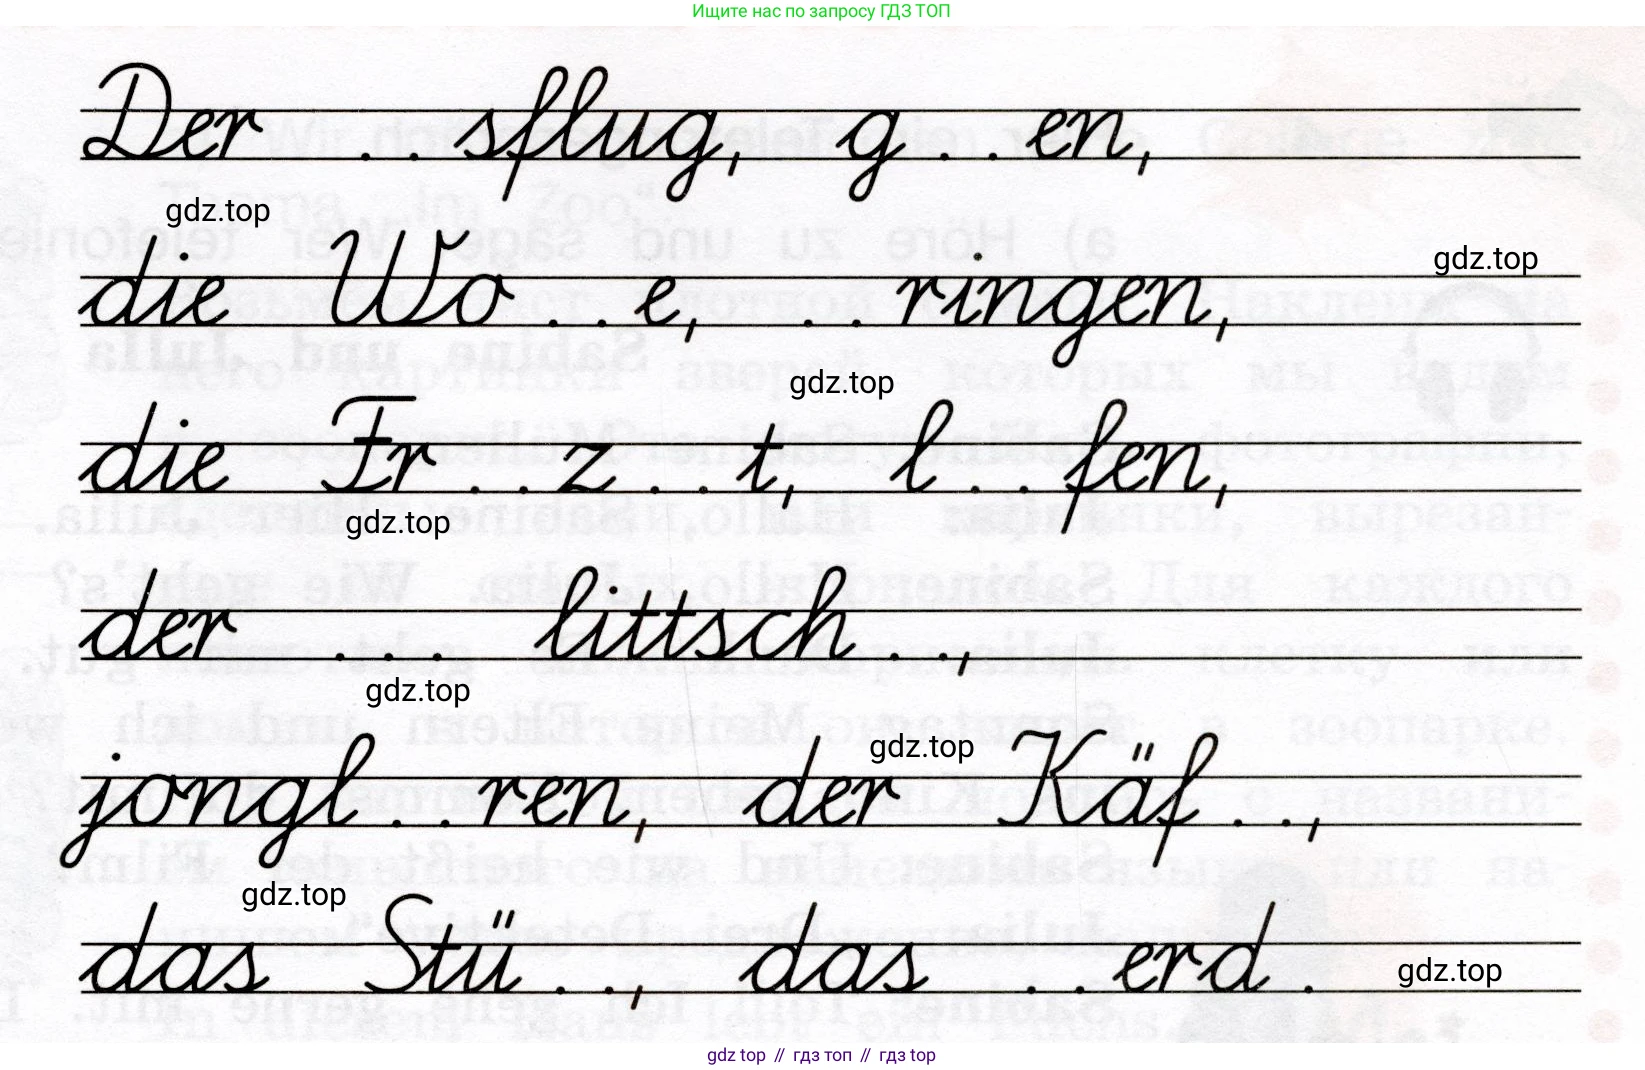 Ищите нас по запросу ГДЗ ТОП
Der . . sflug, g . . en,
gdz.top
die Wo . . e, . . ringen,
gdz.top
gdz.top
die Fr . . z . . t, l . . fen,
gdz.top
der . . . littsch . .,
gdz.top
gdz.top
jongl . . ren, der Käf . .,
gdz.top
das Stü . ., das . . erd .
gdz.top
gdz top // гдз топ // гдз top